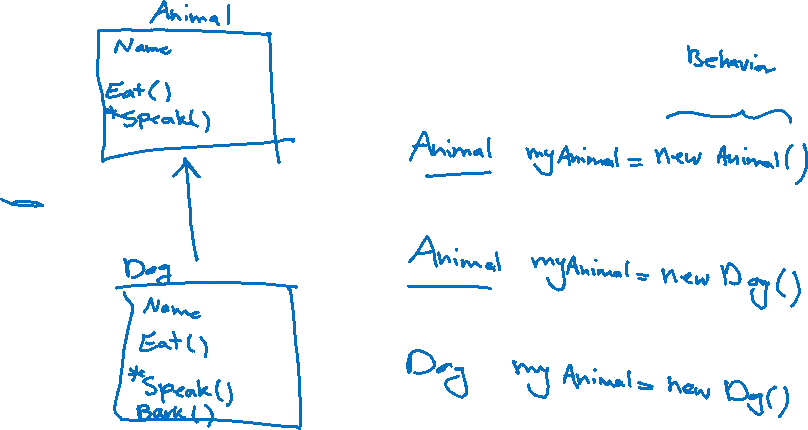 Animal
Name
Eat()
*Speak()
Dog
Name
Eat()
*Speak()
Bark()
Behavior
Animal myAnimal = new Animal()
Animal myAnimal = new Dog()
Dog my Animal = new Dg()